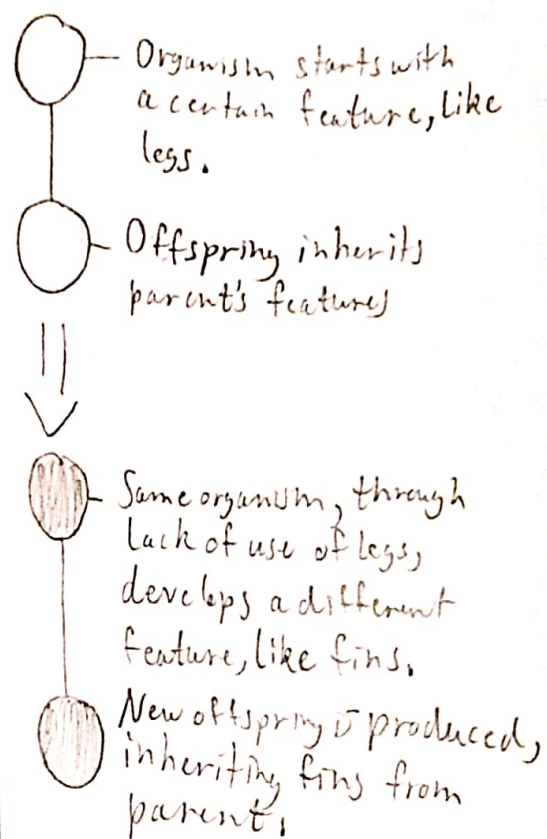 Organism starts with
a certain feature, like
legs.
Offspring inherits
parent's features
Same organism, through
lack of use of legs,
develops a different
feature, like fins.
New offspring is produced,
inheriting fins from
parent.